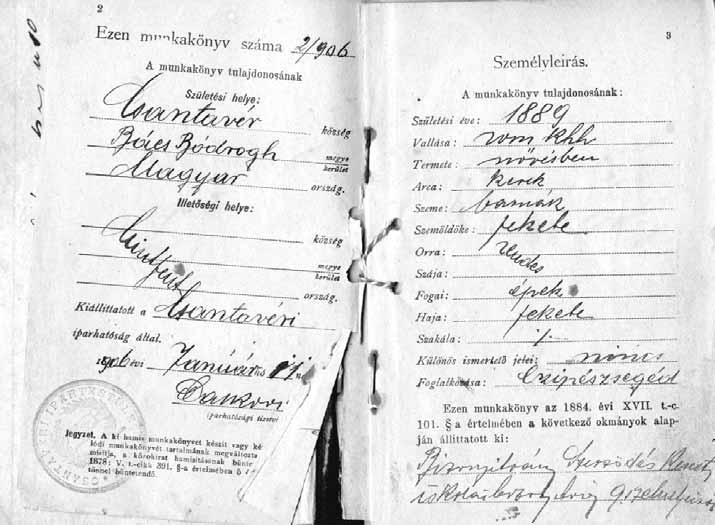 2
Ezen munkakönyv száma 2/906
A munkakönyv tulajdonosának
Születési helye:
Csantavér község
Bács Bodrogh megye kerület
Magyar ország.
Illetőségi helye:
Mint fent község
megye kerület
ország.
Kiállittatott a Csantavéri
iparhatóság által.
1906 évi Január hó 11 n.
iparhatósági tisztvi
Jegyzet. A ki hamis munkakönyvet készit vagy ké-
lódi munkakönyvet tartalmának megváltozta
misitja, a közokirat hamisitásának büntet
1878: V. t.-cikk 391. §-a értelmében 5
tönnel büntetendő.
3
Személyleirás.
A munkakönyv tulajdonosának:
Születési éve: 1889
Vallása: rom kath
Termete: növésben
Arca: kerek
Szeme: barnák
Szemöldöke: fekete
Orra: rendes
Szája:
Fogai: épek
Haja: fekete
Szakála: %
Különös ismertető jelei: nincs
Foglalkozása: Czipészsegéd
Ezen munkakönyv az 1884. évi XVII. t.-c.
101. §-a értelmében a következő okmányok alap-
ján állittatott ki:
Bizonyitvány Szerződés